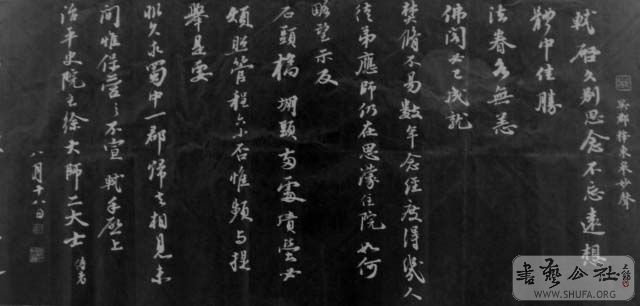 吳郡釋東皋妙聲
軾啟久別思念不忘遠想
體中佳勝
法眷各無恙
佛閣必已成就
焚脩不易數年念經度得幾人
徒弟應師仍在思濛住院如何
略望示及
石頭橋堋頭兩處墳塋必
煩照管程六小心否惟頻與提
舉是要
非久求蜀中一郡歸去相見未
間惟保愛之不宣軾手啟上
治平史院主徐大師二大士侍者
八月十八日
書藝公社
WWW.SHUFA.ORG